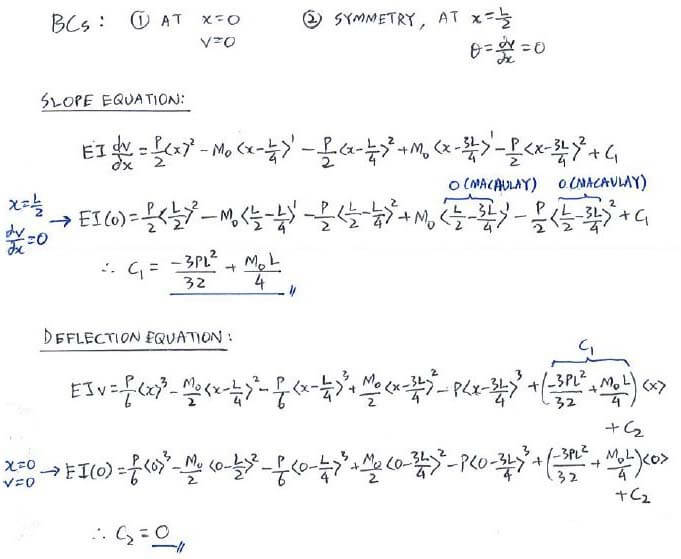 BCs: ① AT x=0 ② SYMMETRY, AT x=L/2
v=0 θ=dv/dx=0
SLOPE EQUATION:
EI dv/dx = P/2<x>² - M₀<x-L/4>¹ - P/2<x-L/4>² + M₀<x-3L/4>¹ - P/2<x-3L/4>² + C₁
0 (MACAULAY) 0 (MACAULAY)
x=L/2
dv/dx=0 → EI(0) = P/2<L/2>² - M₀<L/2-L/4>¹ - P/2<L/2-L/4>² + M₀<L/2-3L/4>¹ - P/2<L/2-3L/4>² + C₁
∴ C₁ = -3PL²/32 + M₀L/4
DEFLECTION EQUATION:
C₁
EIv = P/6<x>³ - M₀/2<x-L/4>² - P/6<x-L/4>³ + M₀/2<x-3L/4>² - P<x-3L/4>³ + (-3PL²/32 + M₀L/4)<x>
+ C₂
x=0
v=0 → EI(0) = P/6<0>³ - M₀/2<0-L/2>² - P/6<0-L/4>³ + M₀/2<0-3L/4>² - P<0-3L/4>³ + (-3PL²/32 + M₀L/4)<0>
+ C₂
∴ C₂ = 0